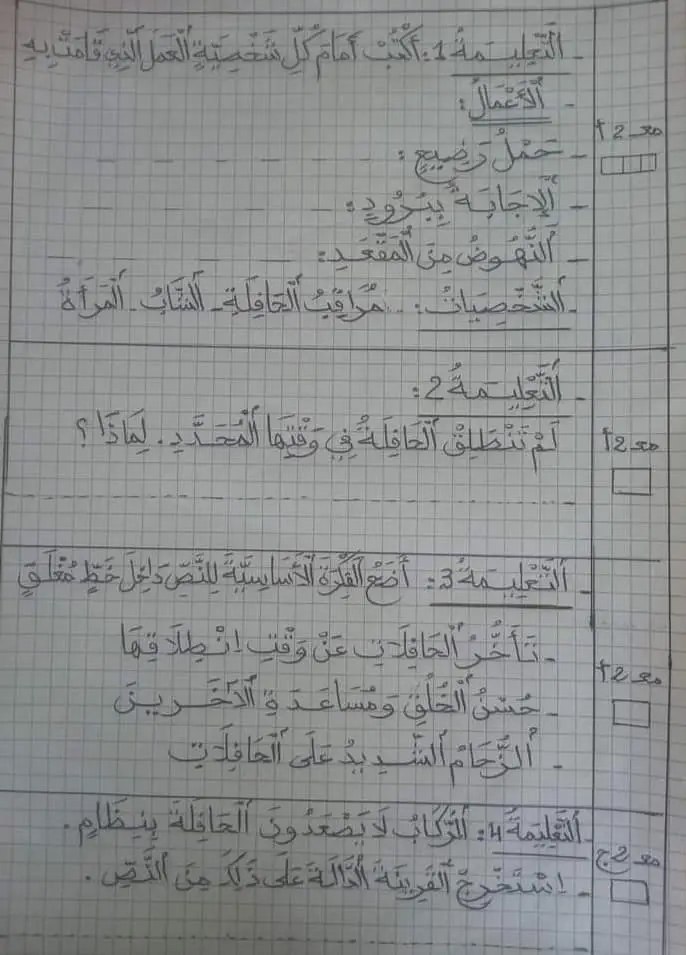 - اَلتَّعْلِيـمَةُ 1: أَكْتُبُ أَمَامَ كُلِّ شَخْصِيَّةٍ اَلْعَمَلَ اَلَّذِي قَامَتْ بِهِ
- اَلْأَعْمَالُ:
معـ 2 أ
- حَمْلُ رَضِيعٍ:
- اَلْإِجَابَةُ بِبُرُودٍ:
- اَلنُّهُوضُ مِنَ الْمَقْعَدِ:
- اَلشَّخْصِيَاتُ: مُرَاقِبُ اَلْحَافِلَةِ - اَلشَّابُ - اَلْمَرْأَةُ
- اَلتَّعْلِيـمَةُ 2:
لَمْ تَنْطَلِقْ اَلْحَافِلَةُ فِي وَقْتِهَا اَلْمُحَدَّدِ. لِمَاذَا؟
معـ 2 أ
- اَلتَّعْلِيمَةُ 3: أَضَعُ اَلْفِكْرَةَ اَلْأَسَاسِيَّةَ لِلنَّصِّ دَاخِلَ خَطٍّ مُغْلَقٍ
- تَأَخُّرُ اَلْحَافِلَاتِ عَنْ وَقْتِ اِنْطِلَاقِهَا
معـ 2 أ
- حُسْنُ اَلْخُلُقِ وَمُسَاعَدَةِ اَلْآخَرِينَ
- اَلزِّحَامُ اَلشَّدِيدُ عَلَى اَلْحَافِلَاتِ
- اَلتَّعْلِيمَةُ 4: اَلرُّكَّابُ لَا يَصْعَدُونَ اَلْحَافِلَةَ بِنِظَامٍ.
معـ 2 ج
- اِسْتَخْرِجْ اَلْقَرِينَةَ اَلدَّالَةَ عَلَى ذَلِكَ مِنَ اَلنَّصِّ.